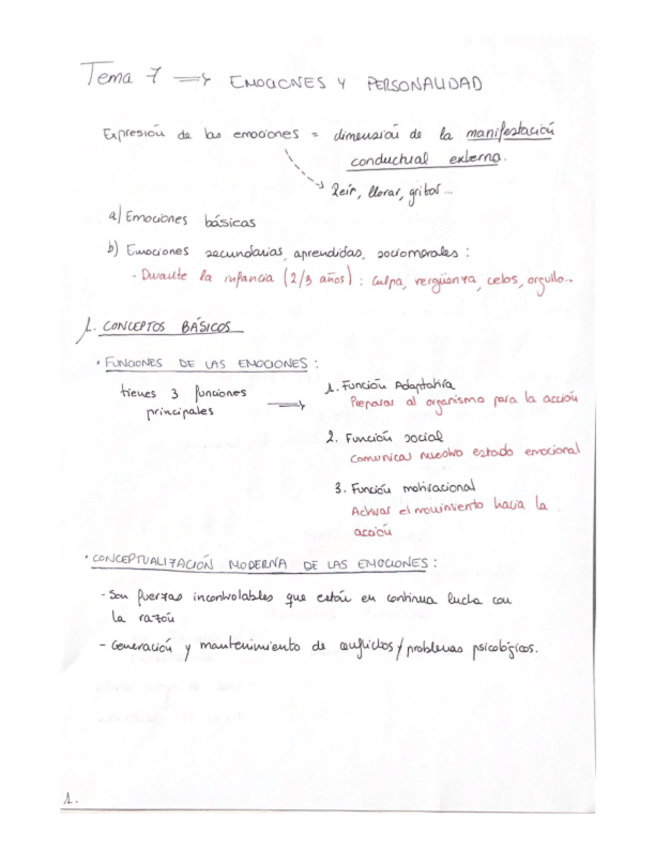 Tema 7 → EMOCIONES Y PERSONALIDAD
Expresión de las emociones = dimensión de la manifestación
conductual externa.
Reír, llorar, gritar...
a) Emociones básicas
b) Emociones secundarias, aprendidas, sociomorales:
- Durante la infancia (2/3 años): culpa, vergüenza, celos, orgullo...
1. CONCEPTOS BÁSICOS
• FUNCIONES DE LAS EMOCIONES:
tienes 3 funciones
principales →
1. Función Adaptativa
Preparar al organismo para la acción
2. Función social
Comunicar nuestro estado emocional
3. Función motivacional
Activar el movimiento hacia la
acción
• CONCEPTUALIZACIÓN MODERNA DE LAS EMOCIONES:
- Son fuerzas incontrolables que están en continua lucha con
la razón
- Generación y mantenimiento de conflictos/problemas psicológicos.
1.